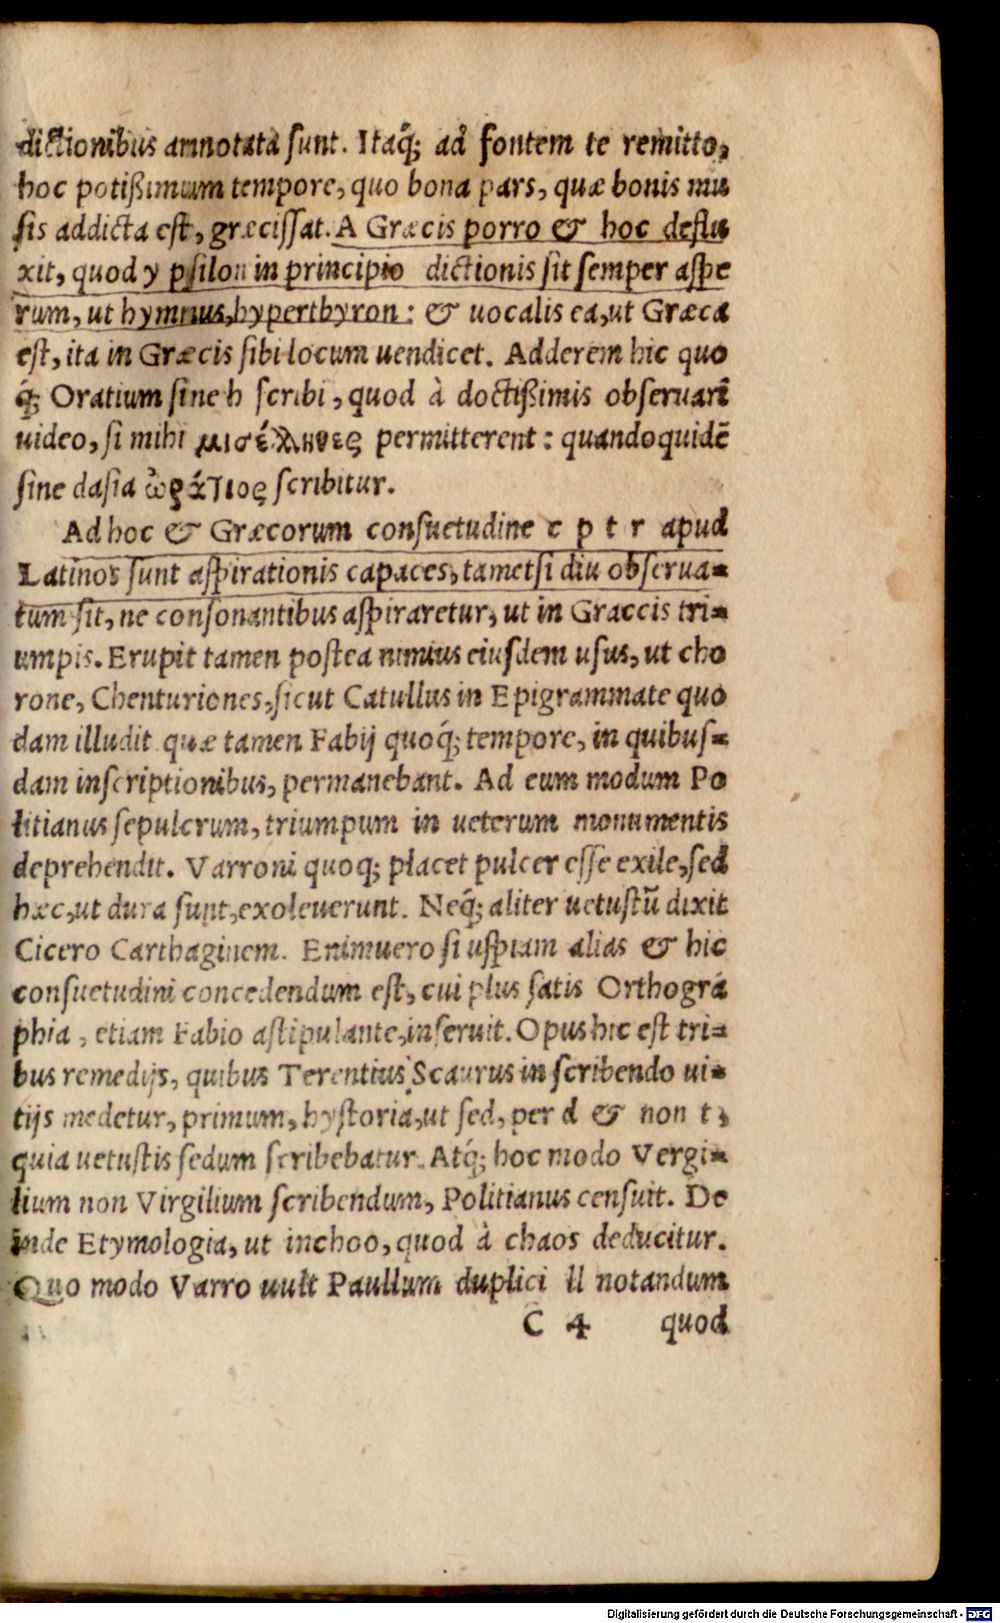 dictionibus annotata sunt. Itaq́; ad fontem te remitto,
hoc potißimum tempore, quo bona pars, quæ bonis mu
sis addicta est, græcissat. A Græcis porro & hoc deflu
xit, quod y psilon in principio dictionis sit semper aspe
rum, ut hymnus, hyperthyron: & uocalis ea, ut Græca
est, ita in Græcis sibi locum uendicet. Adderem hic quo
q́; Oratium sine h scribi, quod à doctißimis obseruari
uideo, si mihi μισέλληνες permitterent: quandoquidē
sine dasia ὠράτιος scribitur.
Ad hoc & Græcorum consuetudine c p t r apud
Latinos sunt aspirationis capaces, tametsi diu obserua=
tum sit, ne consonantibus aspiraretur, ut in Graccis tri=
umpis. Erupit tamen postea nimius eiusdem usus, ut cho
rone, Chenturiones, sicut Catullus in Epigrammate quo
dam illudit quæ tamen Fabij quoq́; tempore, in quibus=
dam inscriptionibus, permanebant. Ad eum modum Po
litianus sepulcrum, triumpum in ueterum monumentis
deprehendit. Varroni quoq; placet pulcer esse exile, sed
hæc, ut dura sunt, exoleuerunt. Neq́; aliter uetustū dixit
Cicero Carthaginem. Enimuero si uspiam alias & hic
consuetudini concedendum est, cui plus satis Orthogra
phia, etiam Fabio astipulante, inseruit. Opus hic est tri=
bus remedijs, quibus Terentius Scaurus in scribendo ui=
tijs medetur, primum, hystoria, ut sed, per d & non t,
quia uetustis sedum scribebatur. Atq́; hoc modo Vergi=
lium non Virgilium scribendum, Politianus censuit. De
inde Etymologia, ut inchoo, quod à chaos deducitur.
Quo modo Varro uult Paullum duplici ll notandum
C 4 quod
Digitalisierung gefördert durch die Deutsche Forschungsgemeinschaft - DFG